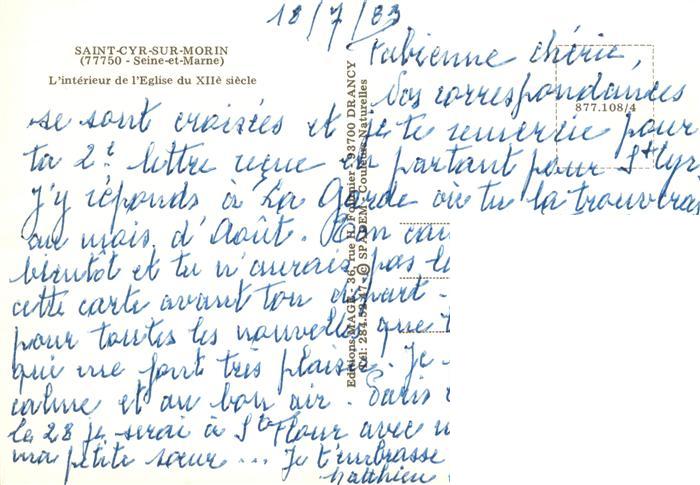 18/7/83
SAINT-CYR-SUR-MORIN
(77750 - Seine-et-Marne)
L'intérieur de l'Eglise du XIIè siècle
877.108/4
Editions MAGE - 36, rue H. Fournier - 93700 DRANCY
Tél: 284.54.47 - © SPADEM - Couleurs Naturelles
Fabienne chérie,
Nos correspondances
se sont croisées et je te remercie pour
ta 2è lettre reçue en partant pour St Cyr
J'y réponds à La Garde où tu la trouveras
au mois d'Août.
bientôt et tu n'aurais pas
cette carte avant ton départ -
pour toutes les nouvelles que
qui me font très plaisir. Je
calme et au bon air. Paris
le 28 je serai à St Flour avec
ma petite sœur ... Je t'embrasse
Matthieu